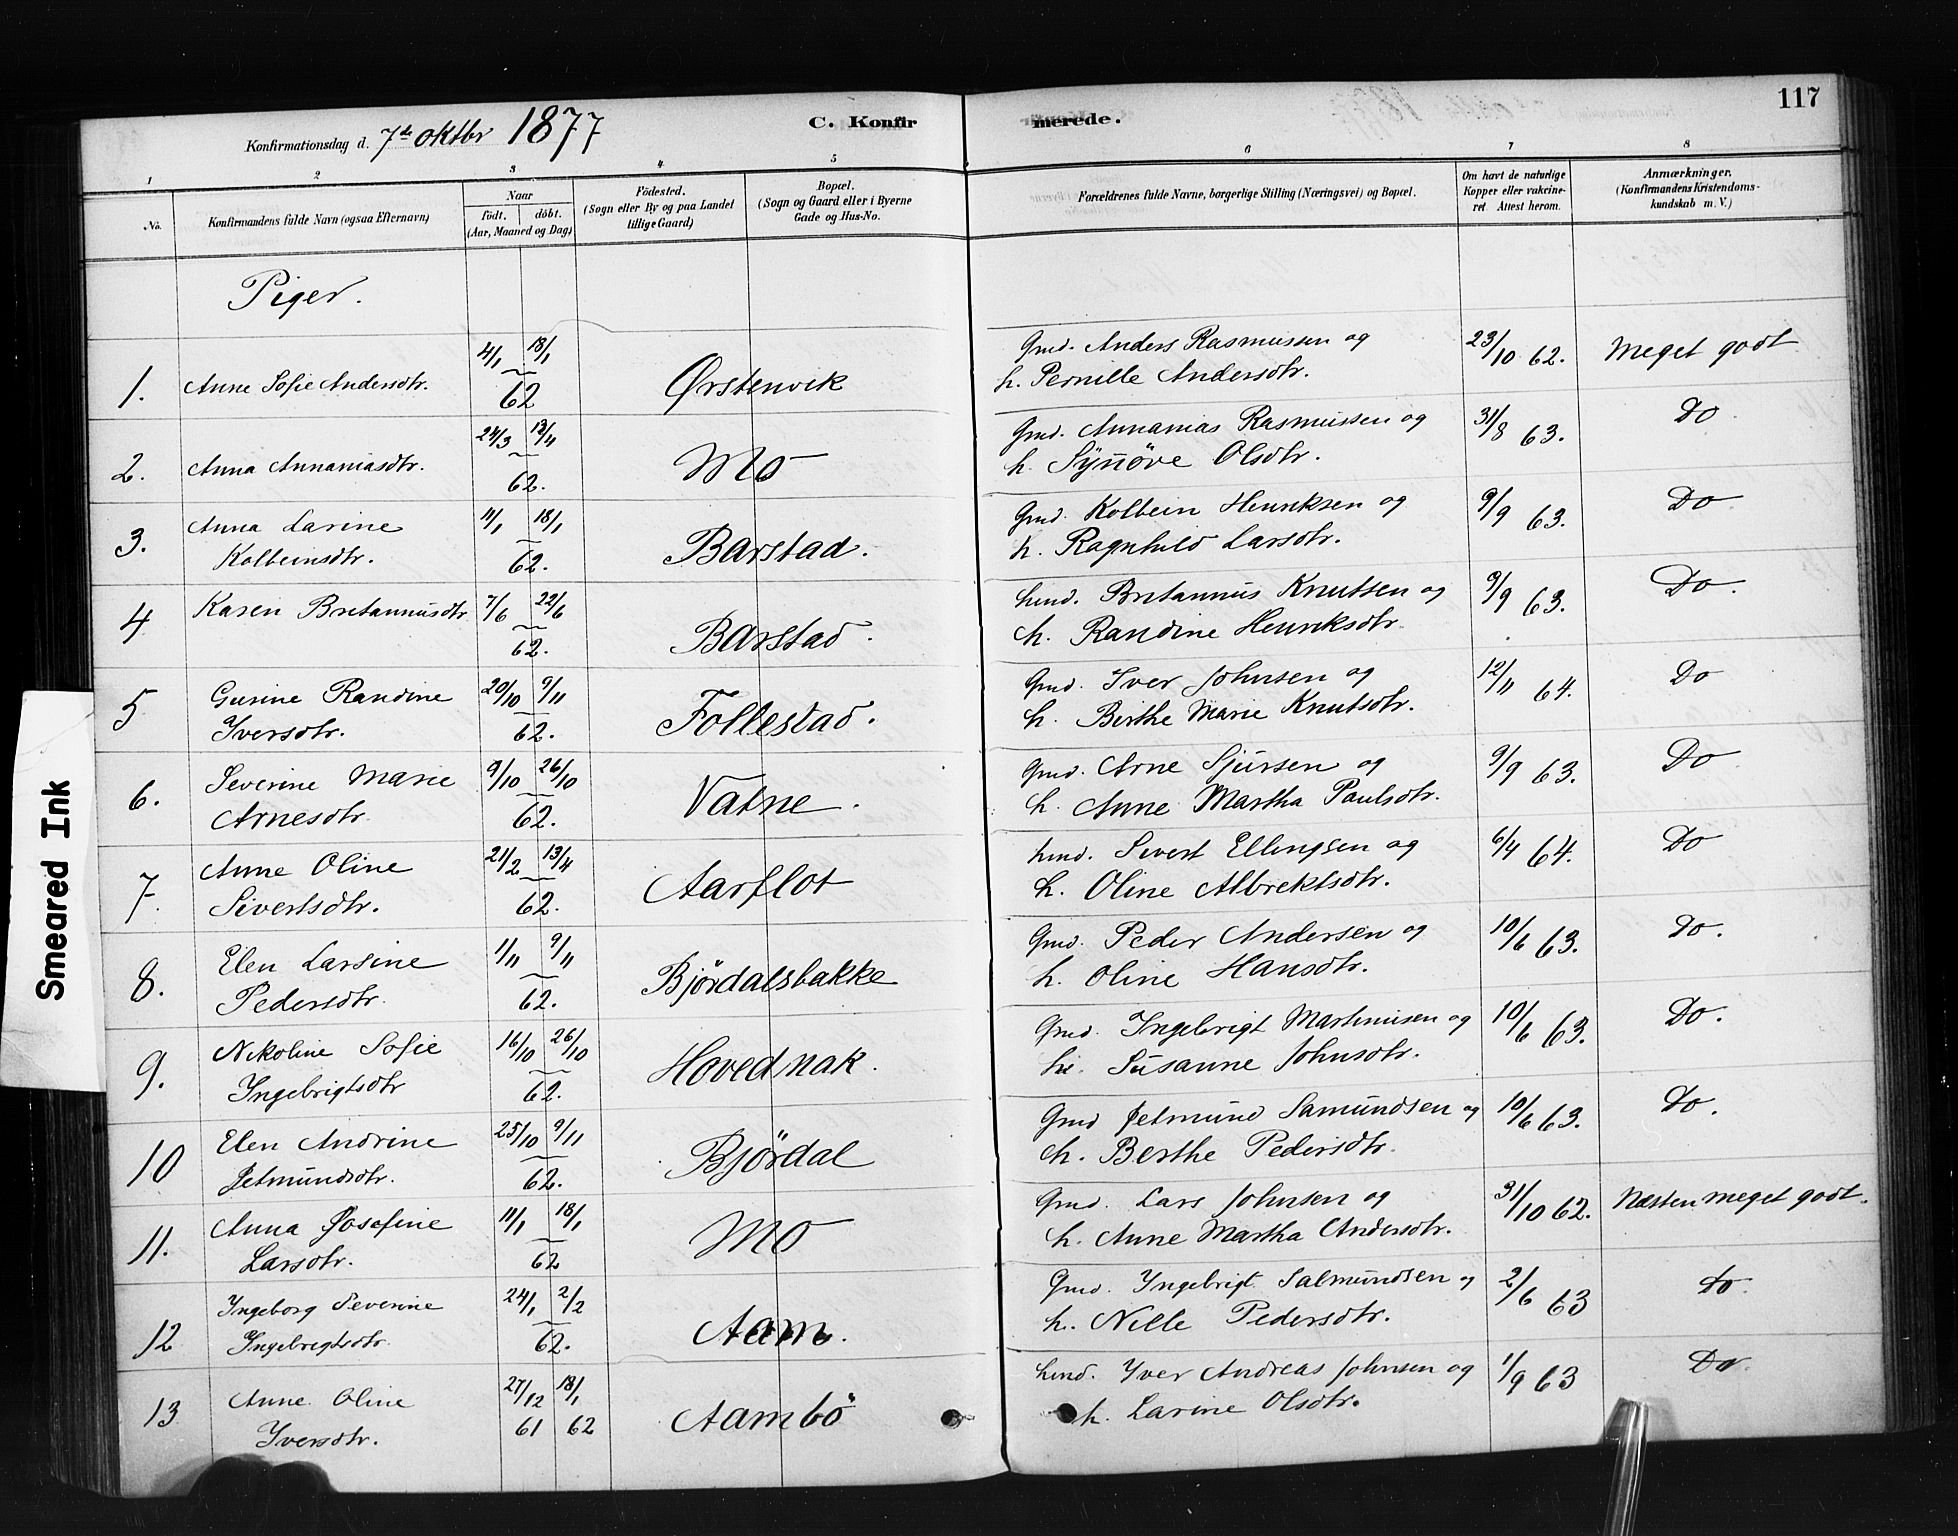 117
Konfirmationsdag d. 7de oktbr 1877
C. Konfirmerede.
1 2 3 4 5 6 7 8
No.
Konfirmandens fulde Navn (ogsaa Efternavn)
Naar
födt. döbt.
(Aar, Maaned og Dag)
Födested.
(Sogn eller By og paa Landet
tillige Gaard)
Bopæl.
(Sogn og Gaard eller i Byerne
Gade og Hus-No.
Forældrenes fulde Navne, borgerlige Stilling (Næringsvei) og Bopæl.
Om havt de naturlige
Kopper eller vakcine-
ret Attest herom.
Anmærkninger.
(Konfirmandens Kristendoms-
kundskab m. V.)
Piger.
1. Anne Sofie Andersdtr. 4/1 18/1 62 Ørstenvik Gmd. Anders Rasmussen og
h. Pernille Andersdtr. 23/10 62. Meget godt
2. Anna Annaniasdtr. 24/3 13/4 62. Mo Gmd. Annanias Rasmussen og
h. Synöve Olsdtr. 31/8 63. Do
3. Anna Larine
Kolbeinsdtr. 11/1 18/1 62. Barstad. Gmd. Kolbein Henriksen og
h. Ragnhild Larsdtr. 9/9 63. Do
4 Karen Britanniusdtr 7/6 22/6 62. Barstad. hmd. Britannius Knutsen og
h. Randine Henriksdtr. 9/9 63. Do.
5 Gurine Randine
Iversdtr. 20/10 9/11 62. Follestad. Gmd. Iver Johnsen og
h. Birthe Marie Knutsdtr. 12/11 64. Do
6. Severine Marie
Arnesdtr. 9/10 26/10 62. Vatne. Gmd. Arne Sjursen og
h. Anne Martha Paulsdtr. 9/9 63. Do
7. Anne Oline
Sivertsdtr. 21/2 13/4 62. Aarflot hmd. Sivert Ellingsen og
h. Oline Albrektsdtr. 6/4 64. Do
8. Elen Larsine
Pedersdtr. 1/11 9/11 62. Björdalsbakke Gmd. Peder Andersen og
h. Oline Hansdtr. 10/6 63. Do.
9. Nikoline Sofie
Ingebrigtsdtr 16/10 26/10 62. Hovednak. Gmd. Ingebrigt Martinusen og
h. Susanne Johnsdtr. 10/6 63. Do.
10 Elen Andrine
Jetmundsdtr. 25/10 9/11 62. Björdal Gmd Jetmund Samundsen og
h. Berthe Pedersdtr. 10/6 63. Do.
11. Anna Josefine
Larsdtr. 11/1 18/1 62 Mo Gmd. Lars Johnsen og
h. Anne Martha Andersdtr. 31/10 62. Næsten meget godt.
12 Ingeborg Severine
Ingebrigtsdtr. 24/1 2/2 62. Aam. Gmd. Yngebrigt Salmundsen og
h. Nille Pedersdtr. 2/6 63 do.
13 Anne Oline
Yversdtr. 27/12 61 18/1 62 Aambö hmd. Yver Andreas Johnsen og
h. Larine Olsdtr. 1/9 63 Do
Smeared Ink